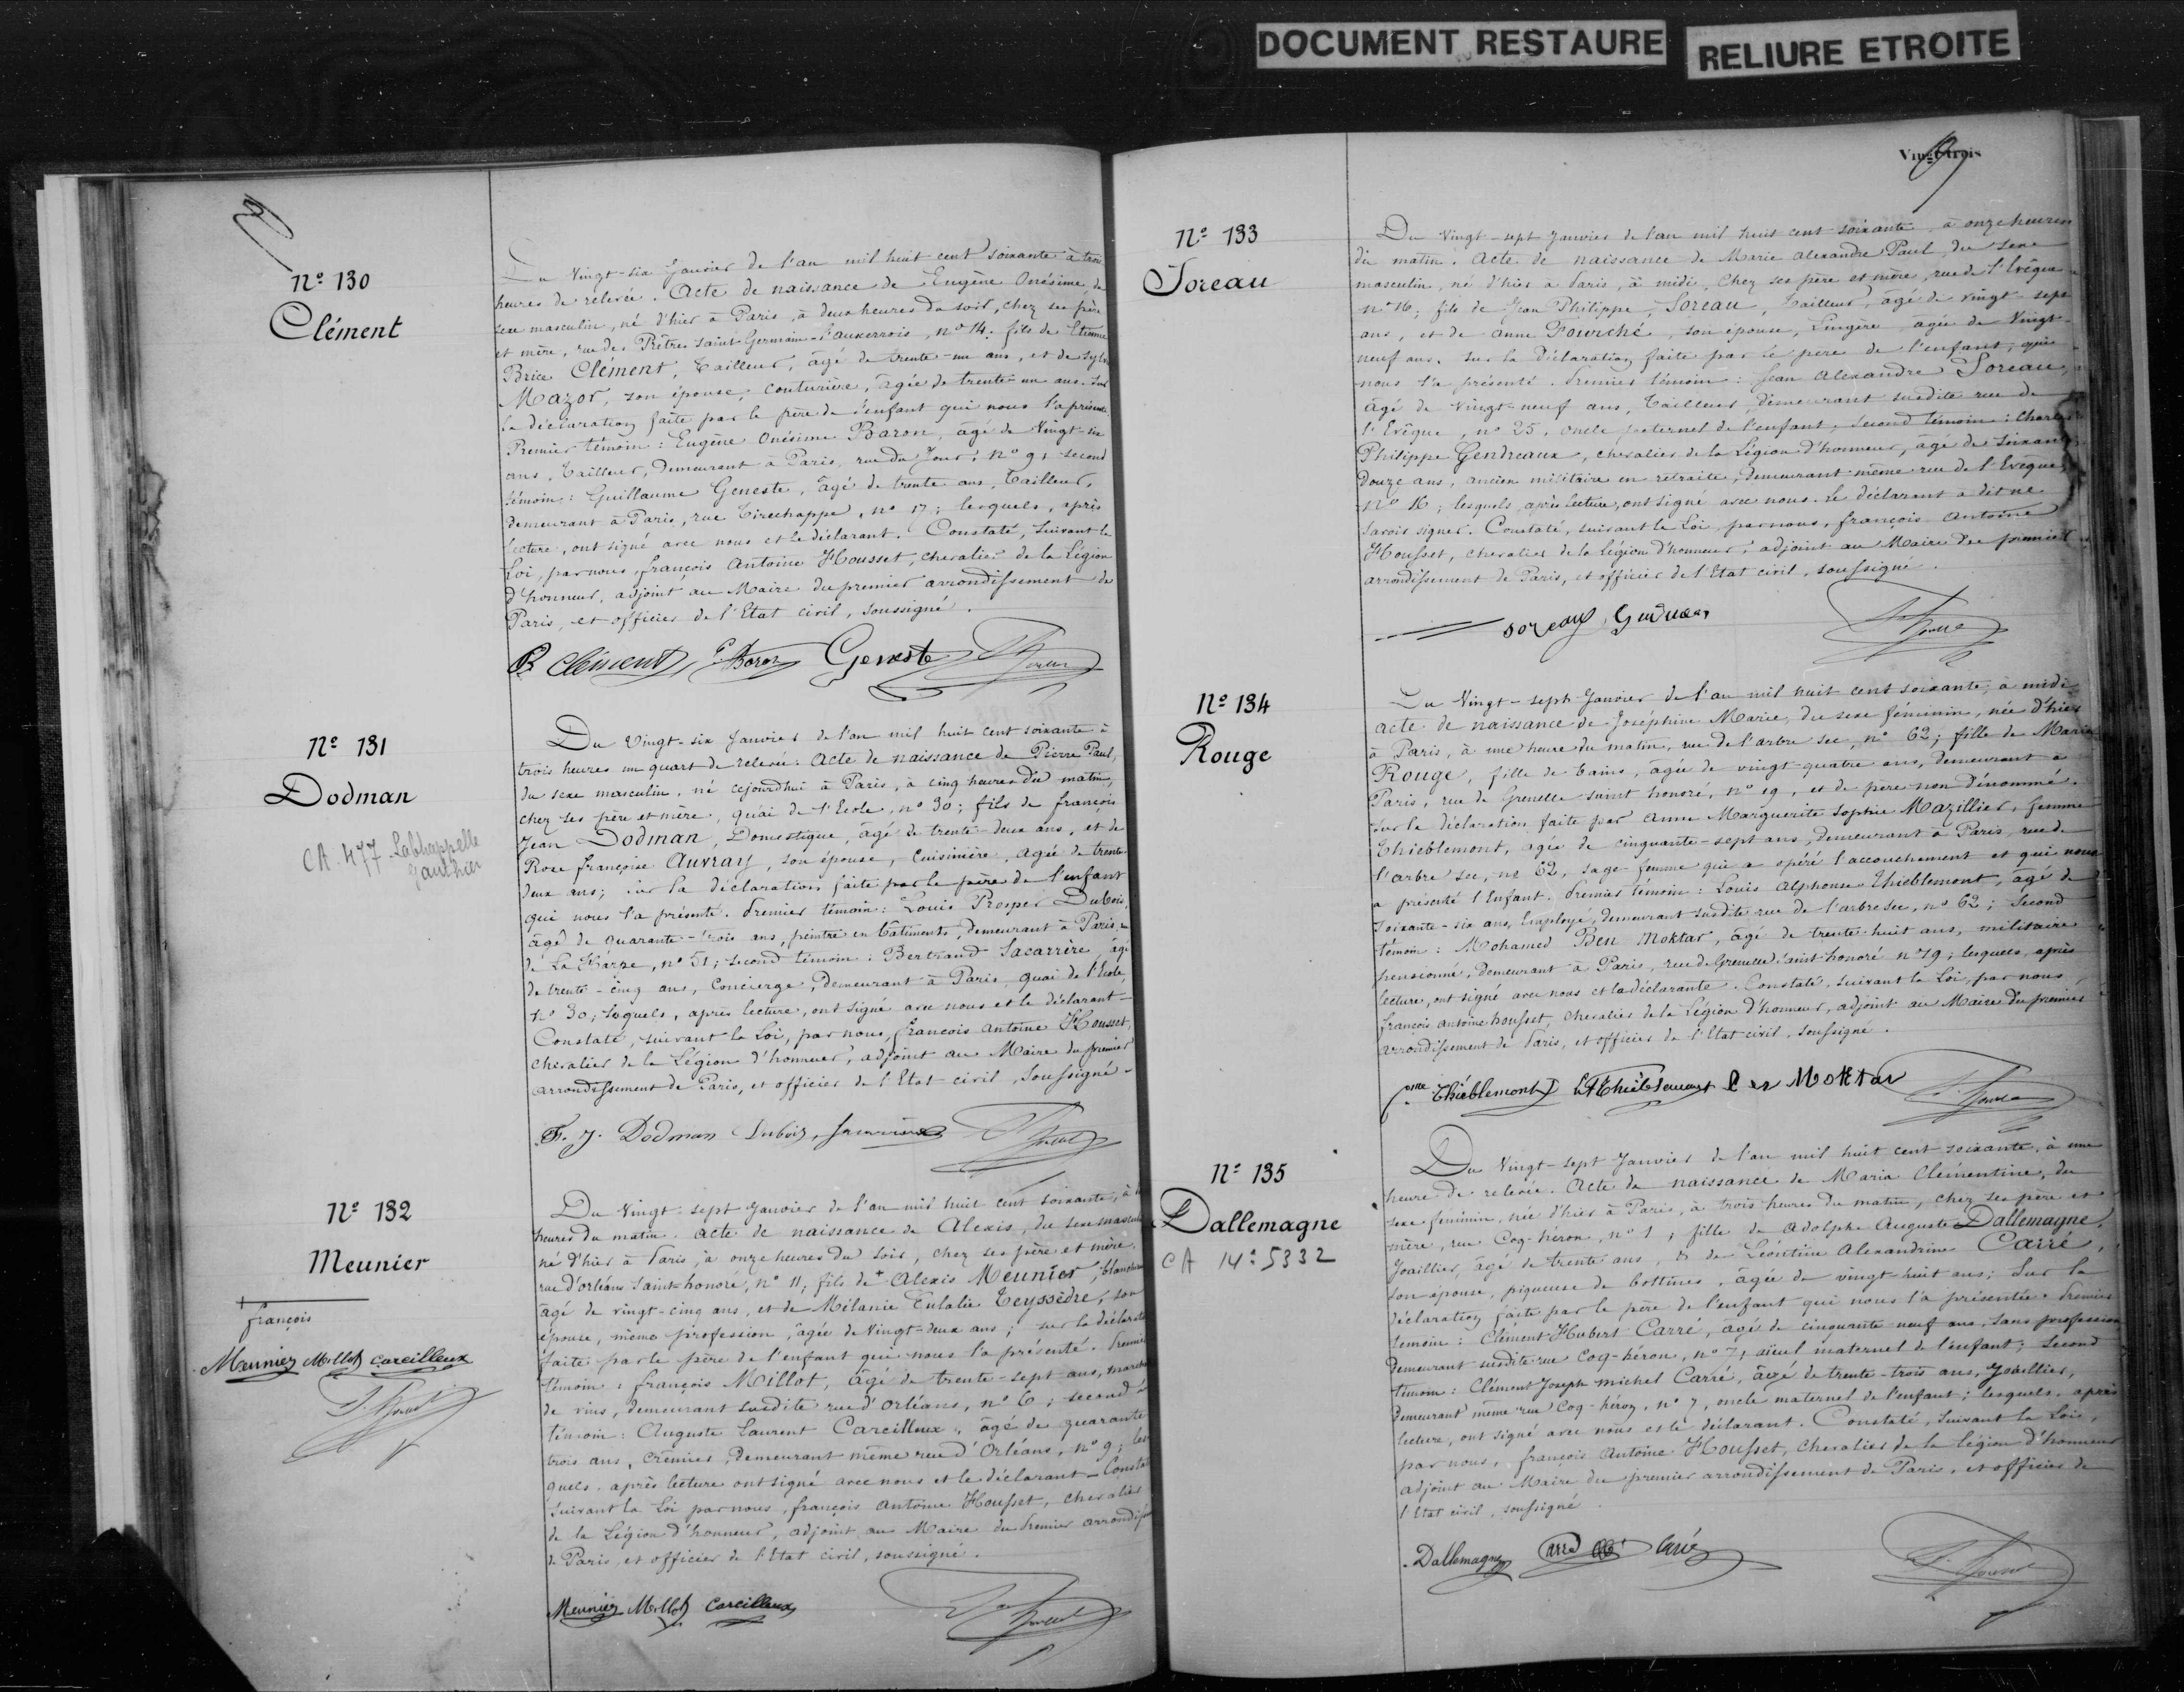 DOCUMENT RESTAURE
RELIURE ETROITE
Nº 130
Clément
Du Vingt-six Janvier de l'an mil huit cent soixante à trois
heures de relevée. Acte de naissance de Eugène Onésime, du
sexe masculin, né d'hier à Paris, à deux heures du soir, chez ses père
et mère, rue des Prêtres Saint-Germain-l'auxerrois, nº 14; fils de Etienne
Brice Clément, Tailleur, âgé de trente-un ans, et de
Mazor, son épouse, couturière, âgée de trente-un ans. Sur
la déclaration faite par le père de l'enfant qui nous l'a présenté.
Premier témoin: Eugène Onésime Baron, âgé de Vingt-six
ans, Tailleur, demeurant à Paris, rue du Jour, nº 9; second
témoin: Guillaume Geneste, âgé de trente ans, Tailleur,
demeurant à Paris, rue Tirechappe, nº 17; lesquels, après
lecture, ont signé avec nous et le déclarant. Constaté, suivant la
Loi, par nous, françois Antoine Housset, chevalier de la Légion
d'honneur, adjoint au Maire du premier arrondissement de
Paris, et officier de l'Etat civil, soussigné.
B Clément Baron Geneste
Nº 131
Dodman
CA 477 Labhappelle
Gauthier
Du Vingt-six Janvier de l'an mil huit cent soixante à
trois heures un quart de relevée. Acte de naissance de Pierre Paul,
du sexe masculin, né cejourdhui à Paris, à cinq heures du matin,
chez ses père et mère, quai de l'Ecole, nº 30; fils de françois
Jean Dodman, Domestique, âgé de trente-deux ans, et de
Rose françoise Auvray, son épouse, Cuisinière, âgée de trente
deux ans; sur la déclaration faite par le père de l'enfant
qui nous l'a présenté. Premier témoin: Louis Prosper Dubois,
âgé de quarante-trois ans, peintre en bâtiments, demeurant à Paris, rue
de La Harpe, nº 51; second témoin: Bertrand Lacarrère, âgé
de trente-cinq ans, Concierge, demeurant à Paris, quai de l'Ecole,
nº 30; lesquels, après lecture, ont signé avec nous et le déclarant-
Constaté, suivant la Loi, par nous, françois Antoine Housset,
chevalier de la Légion d'honneur, adjoint au Maire du premier
arrondissement de Paris, et officier de l'Etat civil, soussigné-
F. J. Dodman Dubois
Nº 132
Meunier
françois
Meunier Millot Carcilleux
Du Vingt-sept Janvier de l'an mil huit cent soixante, à
heures du matin. Acte de naissance de Alexis, du sexe masculin
né d'hier à Paris, à onze heures du soir, chez ses père et mère,
rue d'orléans Saint-honoré, nº 11; fils de + Alexis Meunier, blanchisseur
âgé de vingt-cinq ans, et de Mélanie Eulalie Teyssèdre, son
épouse, même profession, âgée de Vingt-deux ans; sur la déclaration
faite par le père de l'enfant qui nous l'a présenté. Premier
témoin: françois Millot, âgé de trente-sept ans, marchand
de vins, demeurant susdite rue d'orléans, nº 6; second
témoin: Auguste Laurent Carcilleux, âgé de quarante
trois ans, Crêmier, demeurant même rue d'Orléans, nº 9; les
quels, après lecture ont signé avec nous et le déclarant - Constaté
suivant la Loi par nous, françois Antoine Housset, chevalier
de la Légion d'honneur, adjoint au Maire du Premier arrondissement
de Paris, et officier de l'Etat civil, soussigné.
Meunier Millot Carcilleux
Vingt-trois
Nº 133
Soreau
Du Vingt-sept Janvier de l'an mil huit cent soixante à onze heures
du matin. Acte de naissance de Marie Alexandre Paul, du sexe
masculin, né d'hier à Paris, à midi, chez ses père et mère, rue de l'Evêque
nº 16; fils de Jean Philippe Soreau, Tailleur, âgé de vingt-sept
ans, et de Anne Fourché, son épouse, Lingère, âgée de Vingt-
neuf ans. Sur la Déclaration faite par le père de l'enfant, qui
nous l'a présenté. Premier témoin: Jean Alexandre Soreau,
âgé de Vingt-neuf ans, Tailleur, demeurant susdite rue de
l'Evêque, nº 25, oncle paternel de l'enfant; Second témoin: Charles
Philippe Gendreaux, chevalier de la Légion d'honneur, âgé de soixante
Douze ans, ancien militaire en retraite, demeurant même rue de l'Evêque,
Nº 16; lesquels, après lecture, ont signé avec nous. Le déclarant a dit ne
savoir signer. Constaté, suivant la Loi, par nous, françois Antoine
Housset, chevalier de la Légion d'honneur, adjoint au Maire du premier
arrondissement de Paris, et officier de l'Etat civil, soussigné.
Soreau
Nº 134
Rouge
Du Vingt-sept Janvier de l'an mil huit cent soixante, à midi
Acte de naissance de Joséphine Marie, du sexe féminin, née d'hier
à Paris, à une heure du matin, rue de l'arbre sec, nº 62; fille de Marie
Rouge, fille de bains, âgée de vingt-quatre ans, demeurant à
Paris, rue de Grenelle saint honoré, nº 19, et de père non dénommé.
Sur la déclaration faite par Anne Marguerite Sophie Mazillier, femme
Thieblemont, âgée de cinquante-sept ans, demeurant à Paris, rue de
l'arbre sec, nº 62, sage-femme qui a opéré l'accouchement et qui nous
a présenté l'Enfant. Premier témoin: Louis Alphonse Thieblemont, âgé de
soixante-six ans, Employé, demeurant susdite rue de l'arbre sec, nº 62; Second
témoin: Mohamed Ben Moktar, âgé de trente-huit ans, militaire
pensionné, demeurant à Paris, rue de Grenelle saint honoré nº 19; lesquels, après
lecture, ont signé avec nous et la déclarante. Constaté, suivant la Loi, par nous
françois antoine housset, chevalier de la Légion d'honneur, adjoint au Maire du premier
arrondissement de Paris, et officier de l'Etat civil, soussigné.
fme Thiéblemont LA Thiéblemont Ben Moktar
Nº 135
Dallemagne
CA 14: 5332
Du Vingt-sept Janvier de l'an mil huit cent soixante, à une
heure de relevée. Acte de naissance de Maria Clémentine, du
sexe féminin, née d'hier à Paris, à trois heures du matin, chez ses père et
mère, rue Coq-héron, nº 1; fille de Adolphe Auguste Dallemagne,
Joaillier, âgé de trente ans, & de Léontine Alexandrine Carré,
son épouse, piqueuse de bottines, âgée de vingt-huit ans; Sur la
déclaration faite par le père de l'enfant qui nous l'a présentée. Premier
témoin: Clément Hubert Carré, âgé de cinquante neuf ans, sans profession
demeurant susdite rue Coq-héron, nº 7, aïeul maternel de l'enfant; Second
témoin: Clément Joseph Michel Carré, âgé de trente-trois ans, Joaillier,
demeurant même rue Coq-héron, nº 7, oncle maternel de l'enfant; lesquels, après
lecture, ont signé avec nous et le déclarant. Constaté, suivant la Loi,
par nous, françois Antoine Housset, chevalier de la légion d'honneur
adjoint au Maire du premier arrondissement de Paris, et officier de
l'Etat civil, soussigné.
Dallemagne Carré